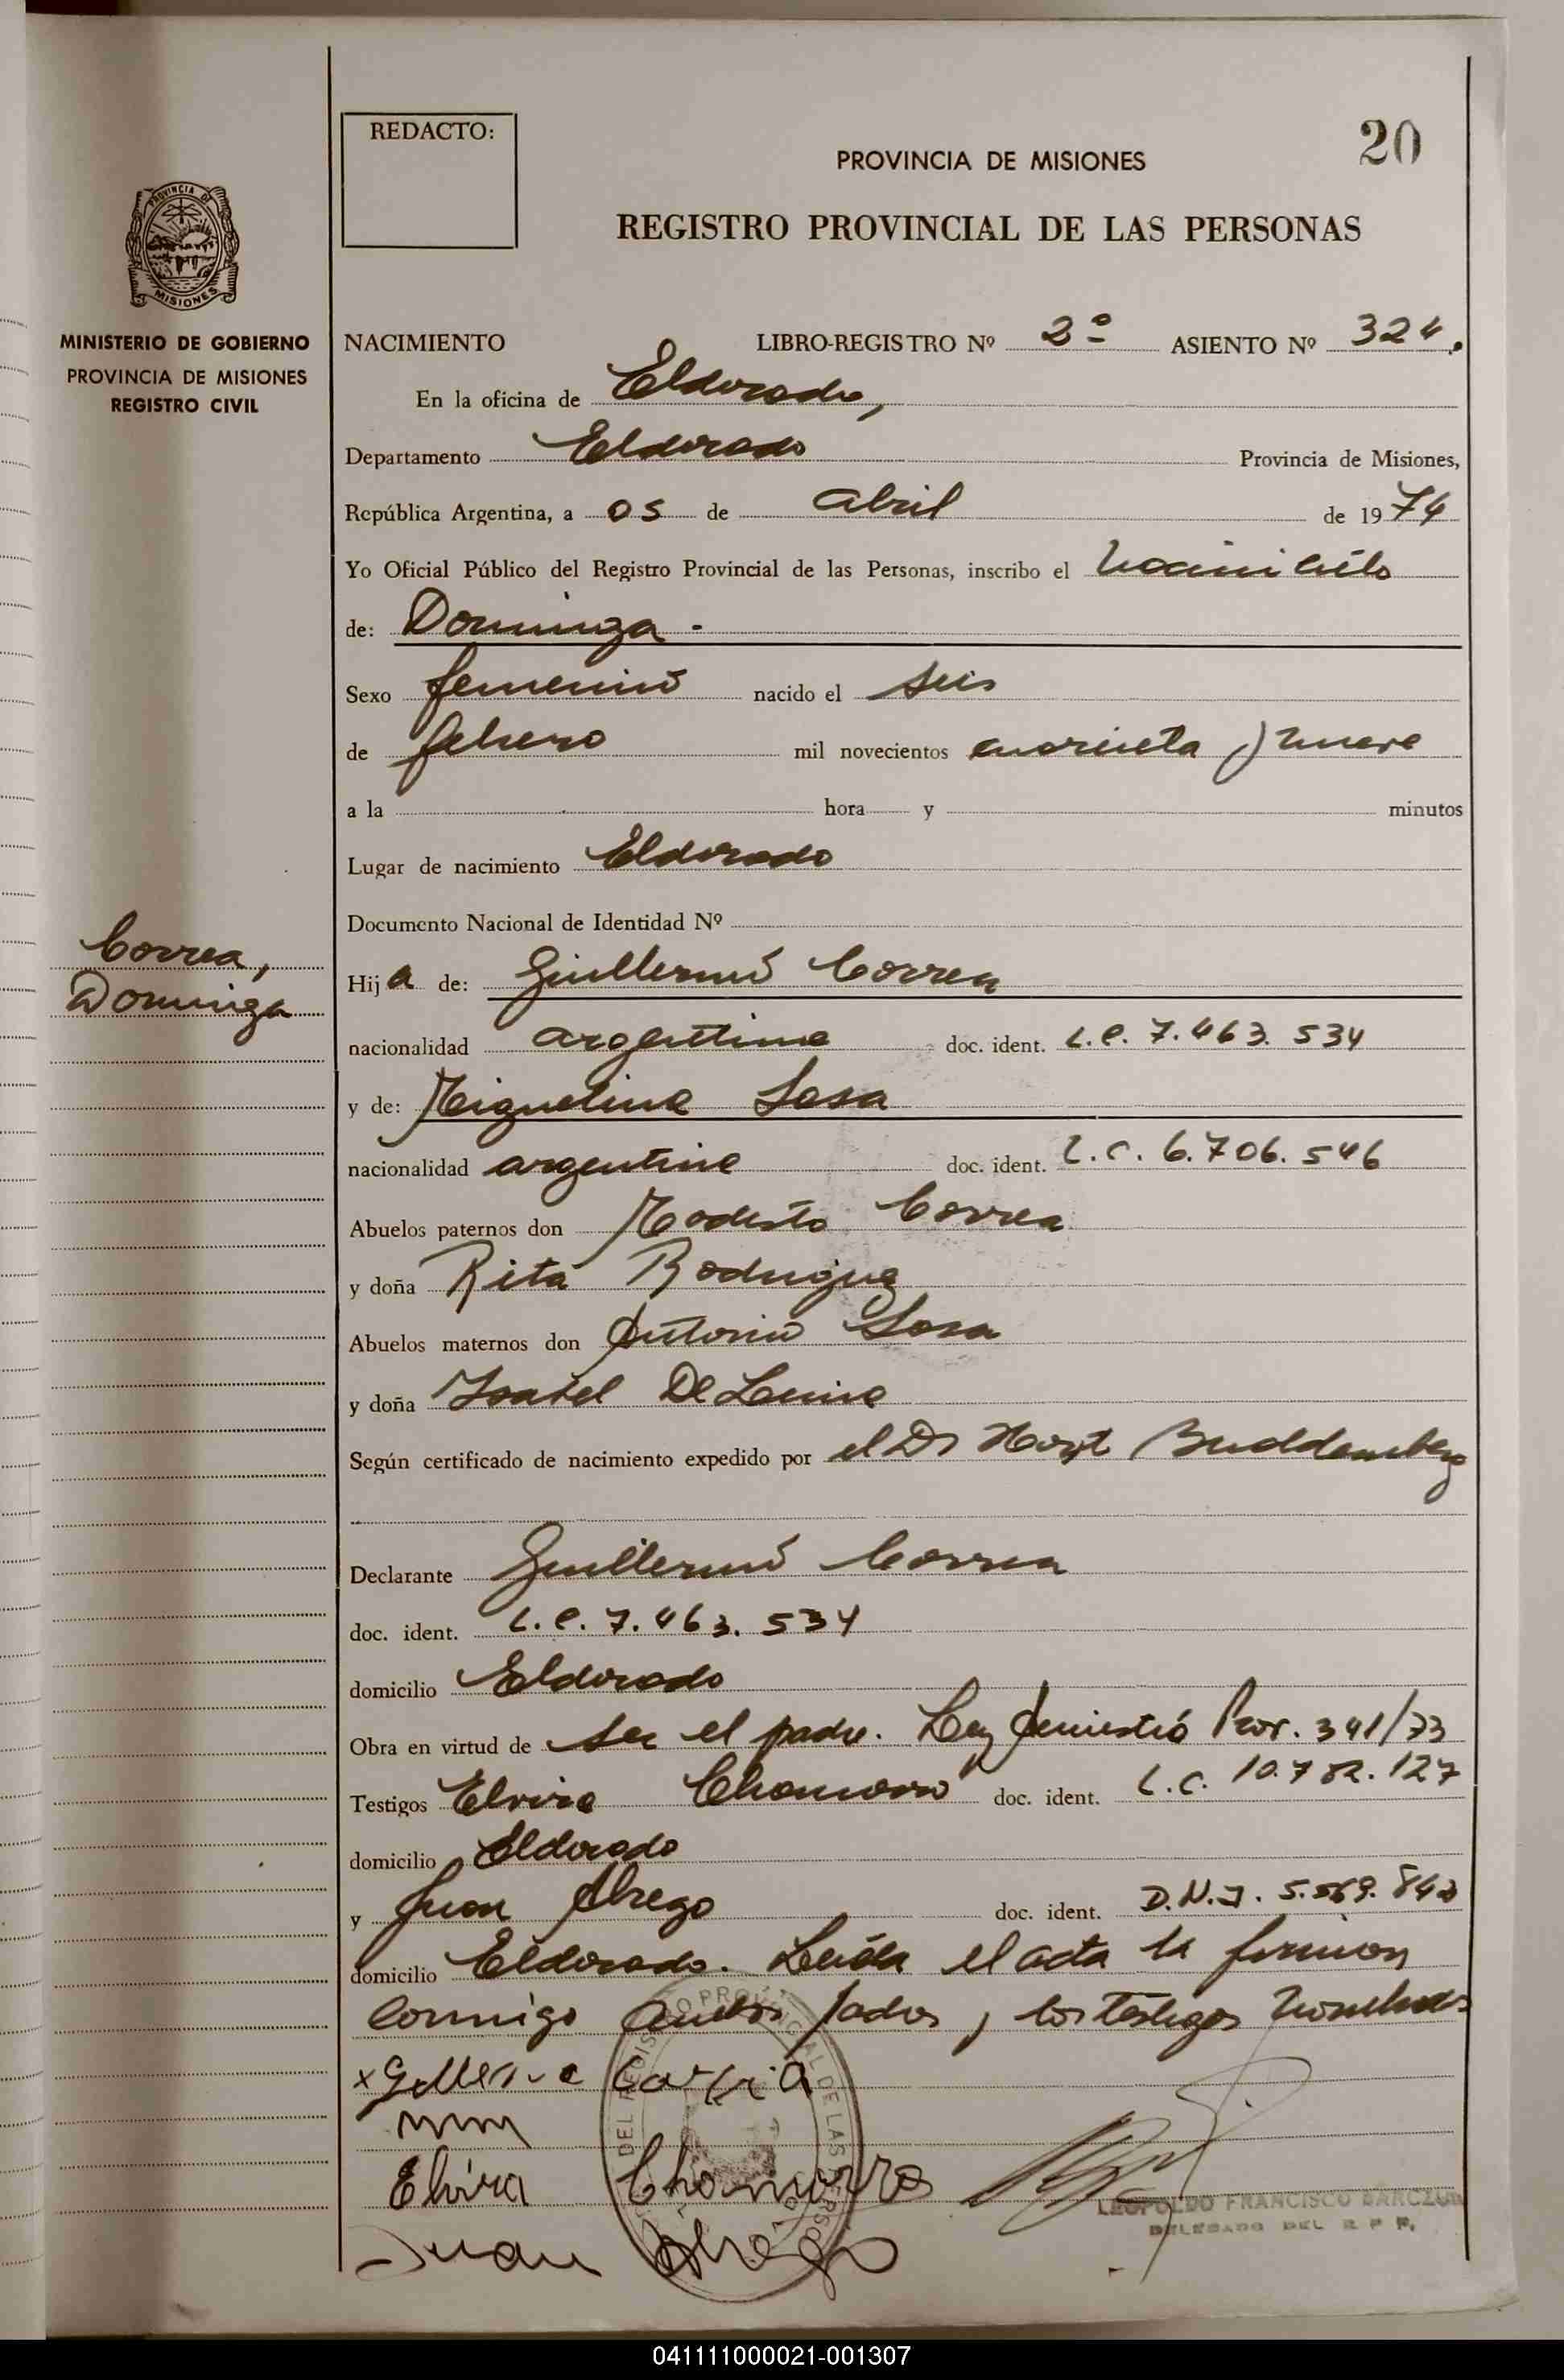 REDACTO:
20
PROVINCIA DE MISIONES
REGISTRO PROVINCIAL DE LAS PERSONAS
PROVINCIA DE
MISIONES
MINISTERIO DE GOBIERNO
PROVINCIA DE MISIONES
REGISTRO CIVIL
NACIMIENTO LIBRO-REGISTRO Nº 2º ASIENTO Nº 324.
En la oficina de Eldorado,
Departamento Eldorado Provincia de Misiones,
República Argentina, a 05 de abril de 1974
Yo Oficial Público del Registro Provincial de las Personas, inscribo el
de: Dominga -
Sexo femenino nacido el seis
de febrero mil novecientos cuarenta y nueve
a la hora y minutos
Lugar de nacimiento Eldorado
Documento Nacional de Identidad Nº
Correa,
Dominga
Hija de: Guillermo Correa
nacionalidad argentina doc. ident. L.e. 7.463.534
y de: Miguelina Sosa
nacionalidad argentina doc. ident. L.C. 6.706.546
Abuelos paternos don Modesto Correa
y doña Rita Rodriguez
Abuelos maternos don Antonio Sosa
y doña Isabel De Lima
Según certificado de nacimiento expedido por el Dr
Declarante Guillermo Correa
doc. ident. L.e. 7.463.534
domicilio Eldorado
Obra en virtud de ser el padre. Ley Amnistió Prov. 341/73
Testigos Elvira Chamorro doc. ident. L.C. 10.782.127
domicilio Eldorado
y Juan Abrego doc. ident. D.N.I. 5.569.
domicilio Eldorado. Leída el acta la firman
conmigo ambos padres y los testigos
x Correa
Elvira Chamorro
Juan Abrego
LEOPOLDO FRANCISCO
DELEGADO DEL R P P.
041111000021-001307